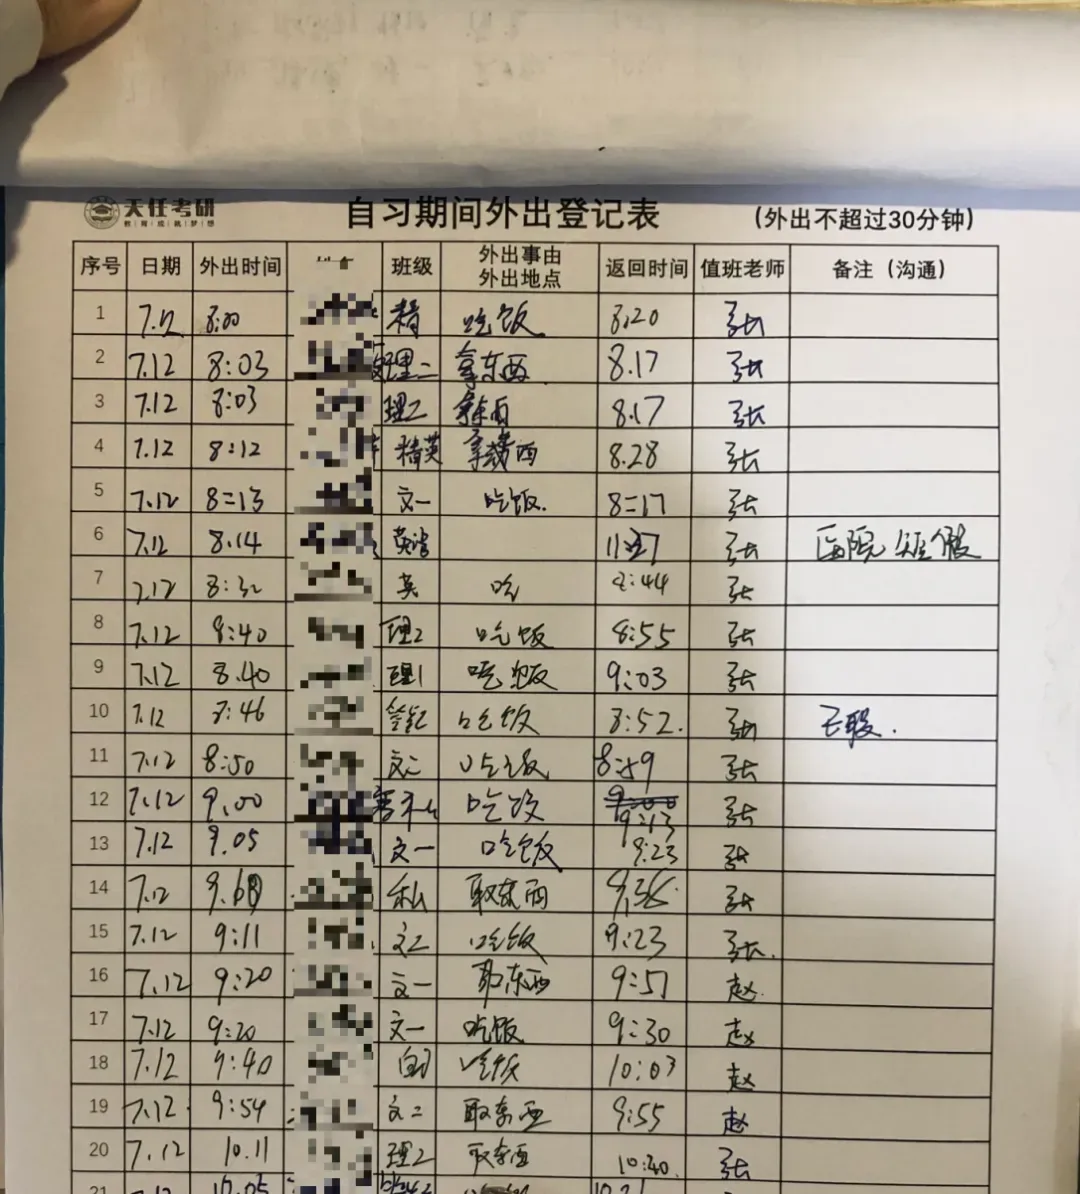 天任考研
教育成就梦想
自习期间外出登记表 (外出不超过30分钟)
序号 日期 外出时间 班级 外出事由 外出地点 返回时间 值班老师 备注（沟通）
1 7.12 8:00 精 吃饭 8.20 张
2 7.12 8:03 理二 拿东西 8.17 张
3 7.12 8:03 理2 拿东西 8.17 张
4 7.12 8:12 精英 拿东西 8.28 张
5 7.12 8:13 文一 吃饭. 8:17 张
6 7.12 8.14 张 医院 短假
7 7.12 8:32 英 吃 8:44 张
8 7.12 8:40 理2 吃饭 8:55 张
9 7.12 8.40 理1 吃饭 9:03 张
10 7.12 8:46 吃饭 8:52. 张
11 7.12 8:50 文二 吃饭 8:59 张
12 7.12 9.00 吃饭 9:13 张
13 7.12 9.05 文一 吃饭 9:23 张
14 7.12 私 取东西 9.36 张
15 7.12 9:11 文2 吃饭 9:23 张.
16 7.12 9:20 文一 取东西 9:51 赵.
17 7.12 9:20 文一 吃饭 9:30 赵
18 7.12 9:40 吃饭 10:03 赵
19 7.12. 9:54 文二 取东西 9:55 赵
20 7.12 10.11 理2 取东西 10:20. 张
21 7.12 10.05